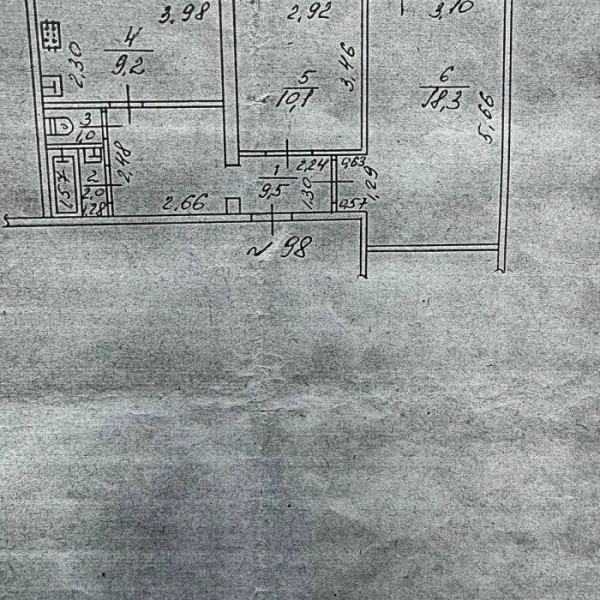 3,98
2,92
3,10
4
9,2
2,30
5
10,1
3,46
6
18,3
5,66
3
1,0
2,48
2
2,0
1,28
157
2,66
1
9,5
2,24
1,30
0,63
1,29
0,57
№ 98